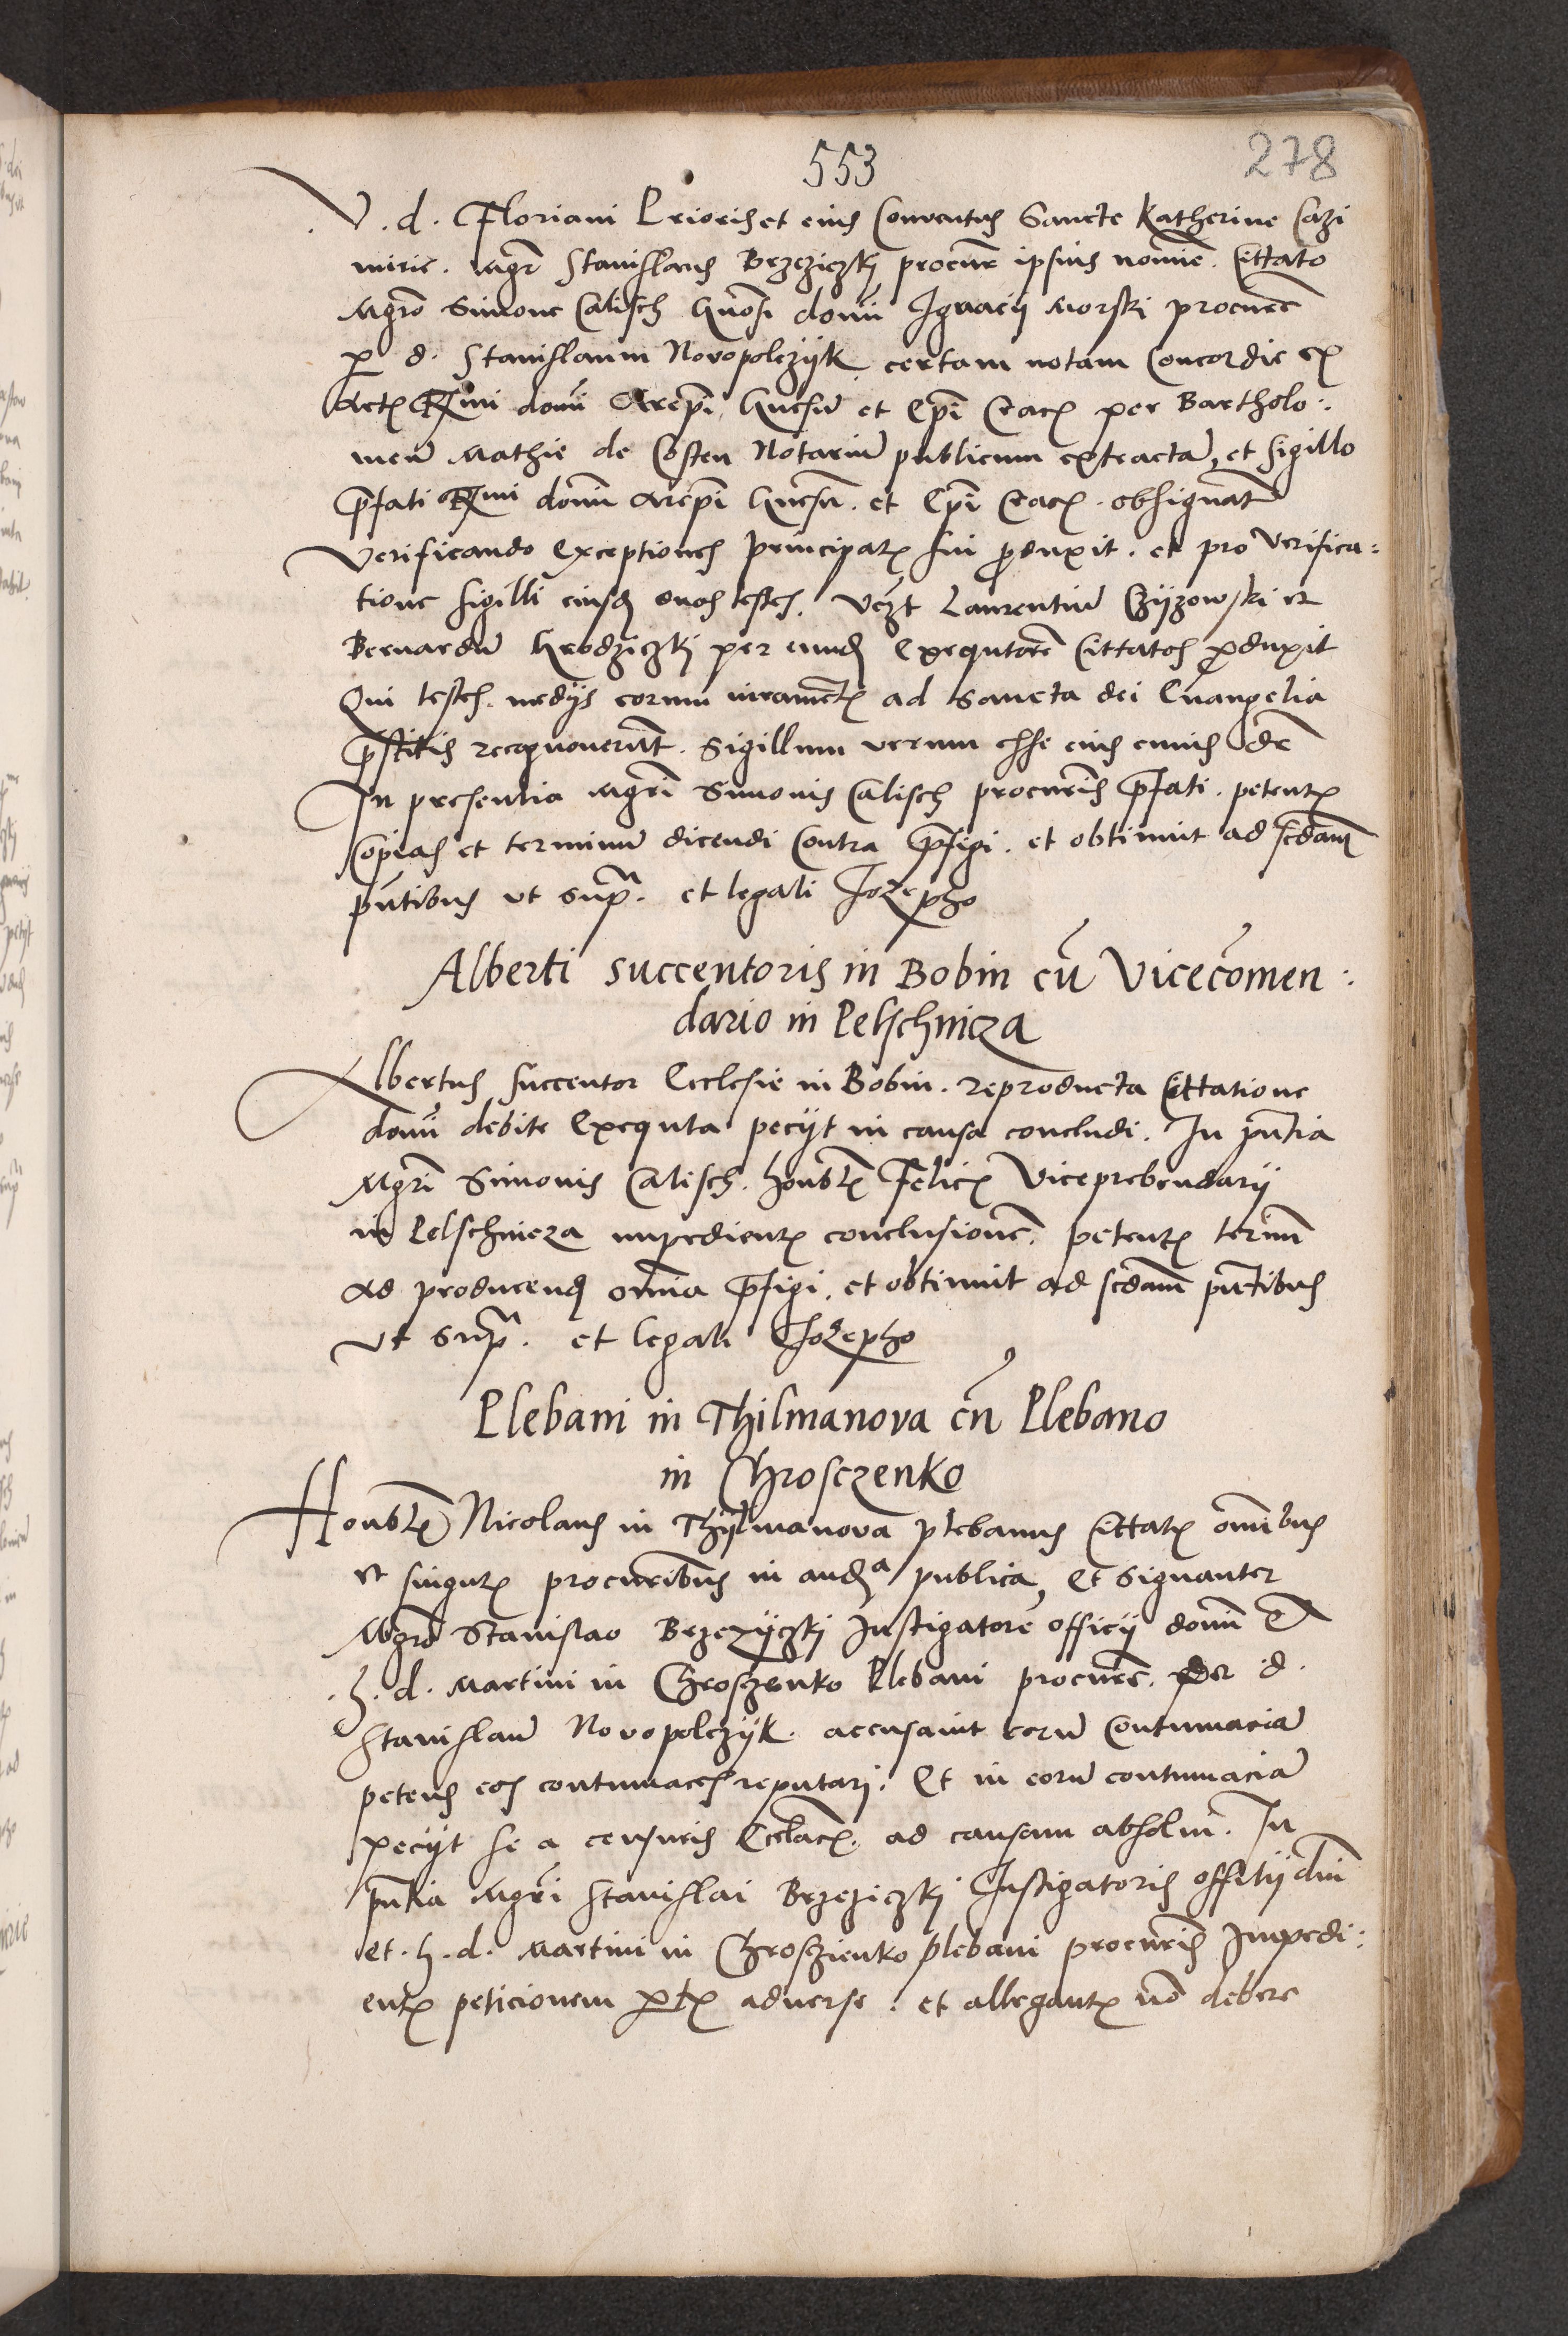 553
278
V. d. Floriani Prioris et eius Conventus Sancte Katherine Cazi
mirie. Mgr̄ Stanislaus Brzeziczki procur̄ ipsius nomine. Cittato
Mgrō Simone Calisch Gnōsi domī Ignacij Morski procurē
p d. Stanislaum Novopolczijk certam notam Concordie ex
Actꝭ Rmi domī Arepī Gnesn̄ et Epī Cracꝭ per Bartholo:
meū Mathie de Costen Notariū publicum extractā, et sigillo
p̄fati Rmi domī Arepī Gnesn̄. et Epī Cracꝭ. obsignat̄
Verificando Exceptiones principaꝉꝭ sui ꝓduxit. et pro verifica:
tione sigilli eiusꝺ duos testes. Vczt Laurentiū Czijzowski et
Bernardū Grodziczki per eunꝺ Exequtorē Cittatos ꝓduxit
Qui testes. medijs eorum iuramētꝭ ad Sancta dei Evangelia
p̄stitis recognoverūt. Sigillum verum esse eius cuius dē
In presentia Mgrī Simonis Calisch procurīs p̄fati. petentꝭ
Copias et terminū dicendi Contra p̄figi. et obtinuit ad scdam
pn̄tibus ut supᵃ. et legali Jozepho
Alberti succentoris in Bobin cū Vicecomen:
dario in Pelschnicza
Albertus succentor Ecclesie in Bobin. reproducta Cittatione
domī debite Exequta pecijt in causa concludi. In pn̄tia
Mgrī Simonis Calisch. honbꝉꝭ Felicꝭ Viceprebendarij
in Pelschnicza impedientꝭ conclusionē. petentꝭ termī
ad producenꝺ omīa p̄figi. et obtinuit ad scdam pn̄tibus
ut supᵃ. et legali Jozepho
Plebani in Thilmanova cū Plebano
in Chrosczenko
Honbꝉꝭ Nicolaus in Thijlmanova plebanus Cittatꝭ omībus
et singuꝉꝭ procuribus in auꝺᵃ publica, et signanter
Mgrō Stanislao Brzezijczki Instigatorē officij domī et
h. d. Martini in Chroszenko Plebani procurē. per d.
Stanislaū Novopolczijk. accusavit eorū Contumaciā
petens eos contumaces reputari. Et in eorū contumaciā
pecijt se a censuris Eccłacꝭ. ad causam absolvi. In
pn̄tia Mgrī Stanislai Brzeziczki Instigatoris offitij dnī
et. h. d. Martini in Chroszienko plebani procurīs Impedi:
entꝭ peticionem ptꝭ adverse. et allegantꝭ nō debere